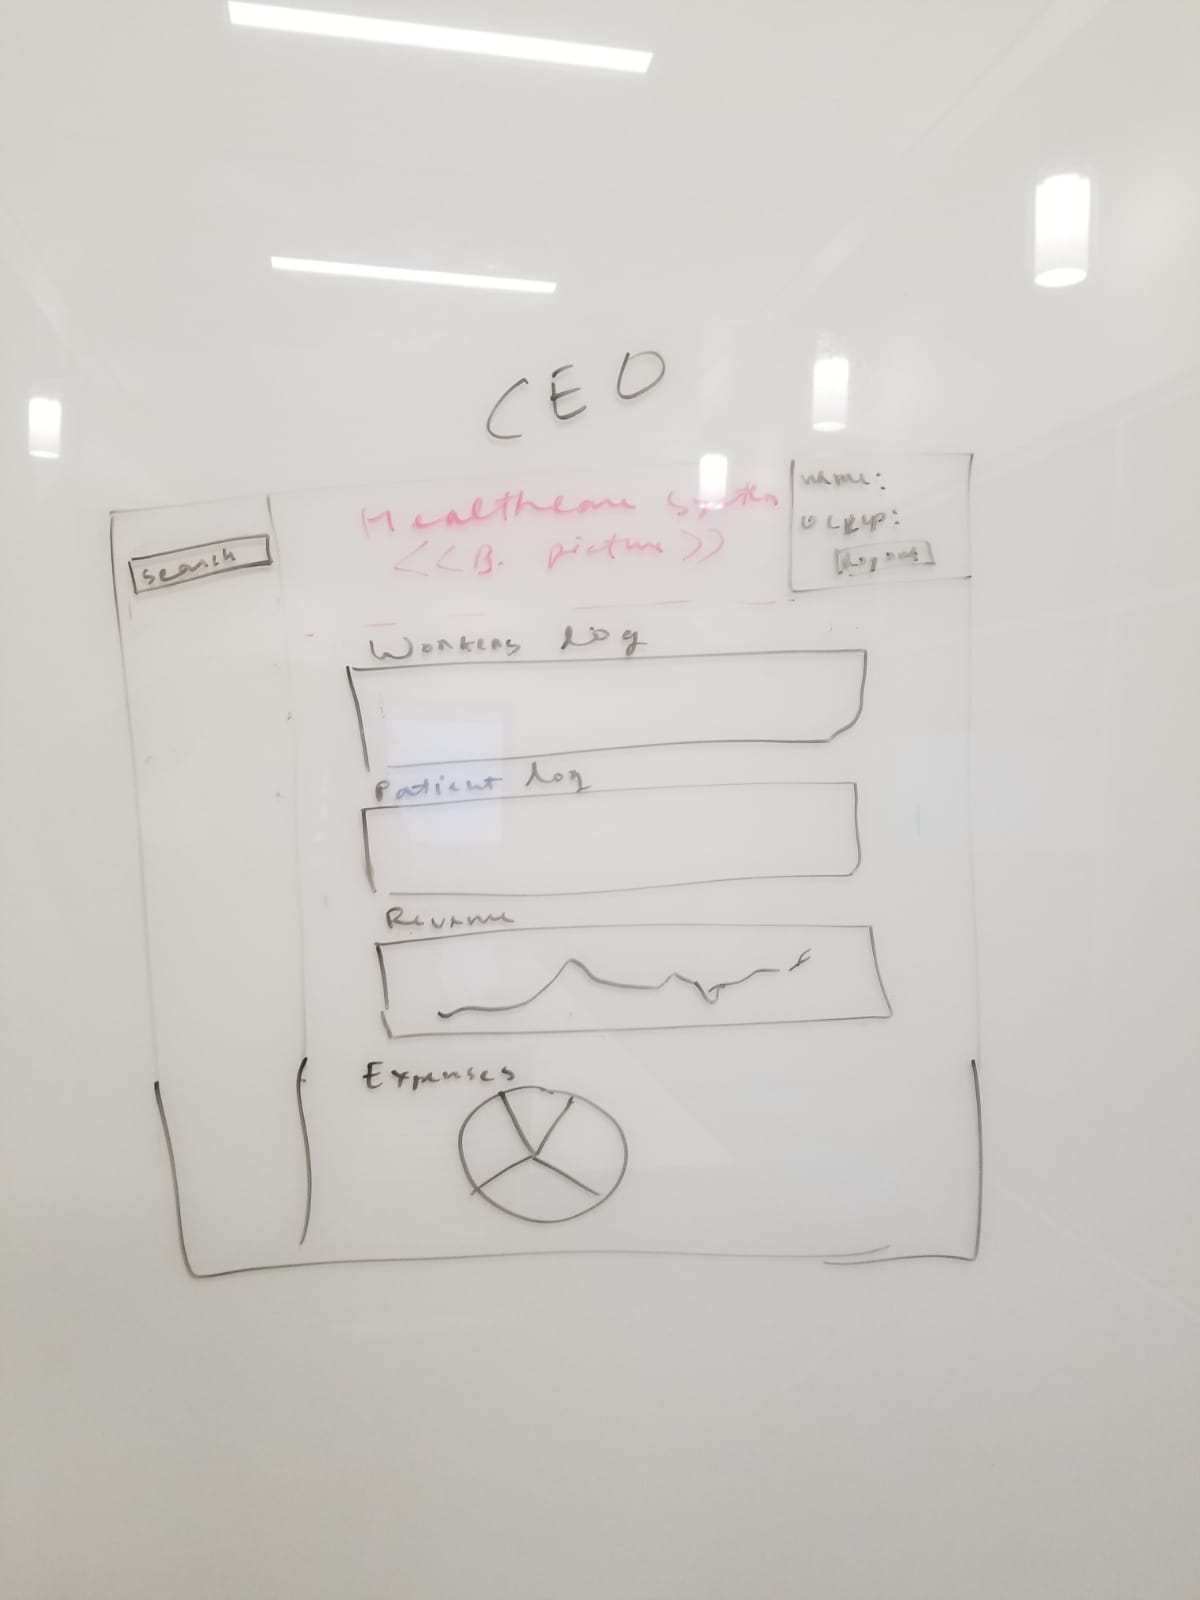 CEO
Healthcare System
<<B. picture>>
name:
search
Log out
Workers Log
Patient Log
Revenue
Expenses